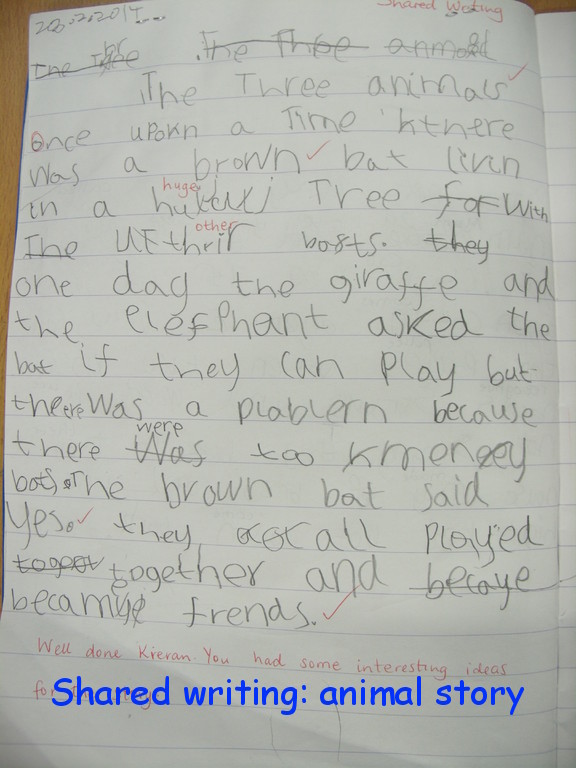 Shared Writing
20.02.2014
The Three animals
Once uporn a Time there
was a brown bat livin
huge
in a Tree with
other
The bats. they
one day the giraffe and
the elesphant asked the
bat if they can play but
there was a plablern because
were
there was too kmeney
bats. The brown bat said
Yes. they all played
together and
became frends.
Well done Kieran. You had some interesting ideas
for
Shared writing: animal story